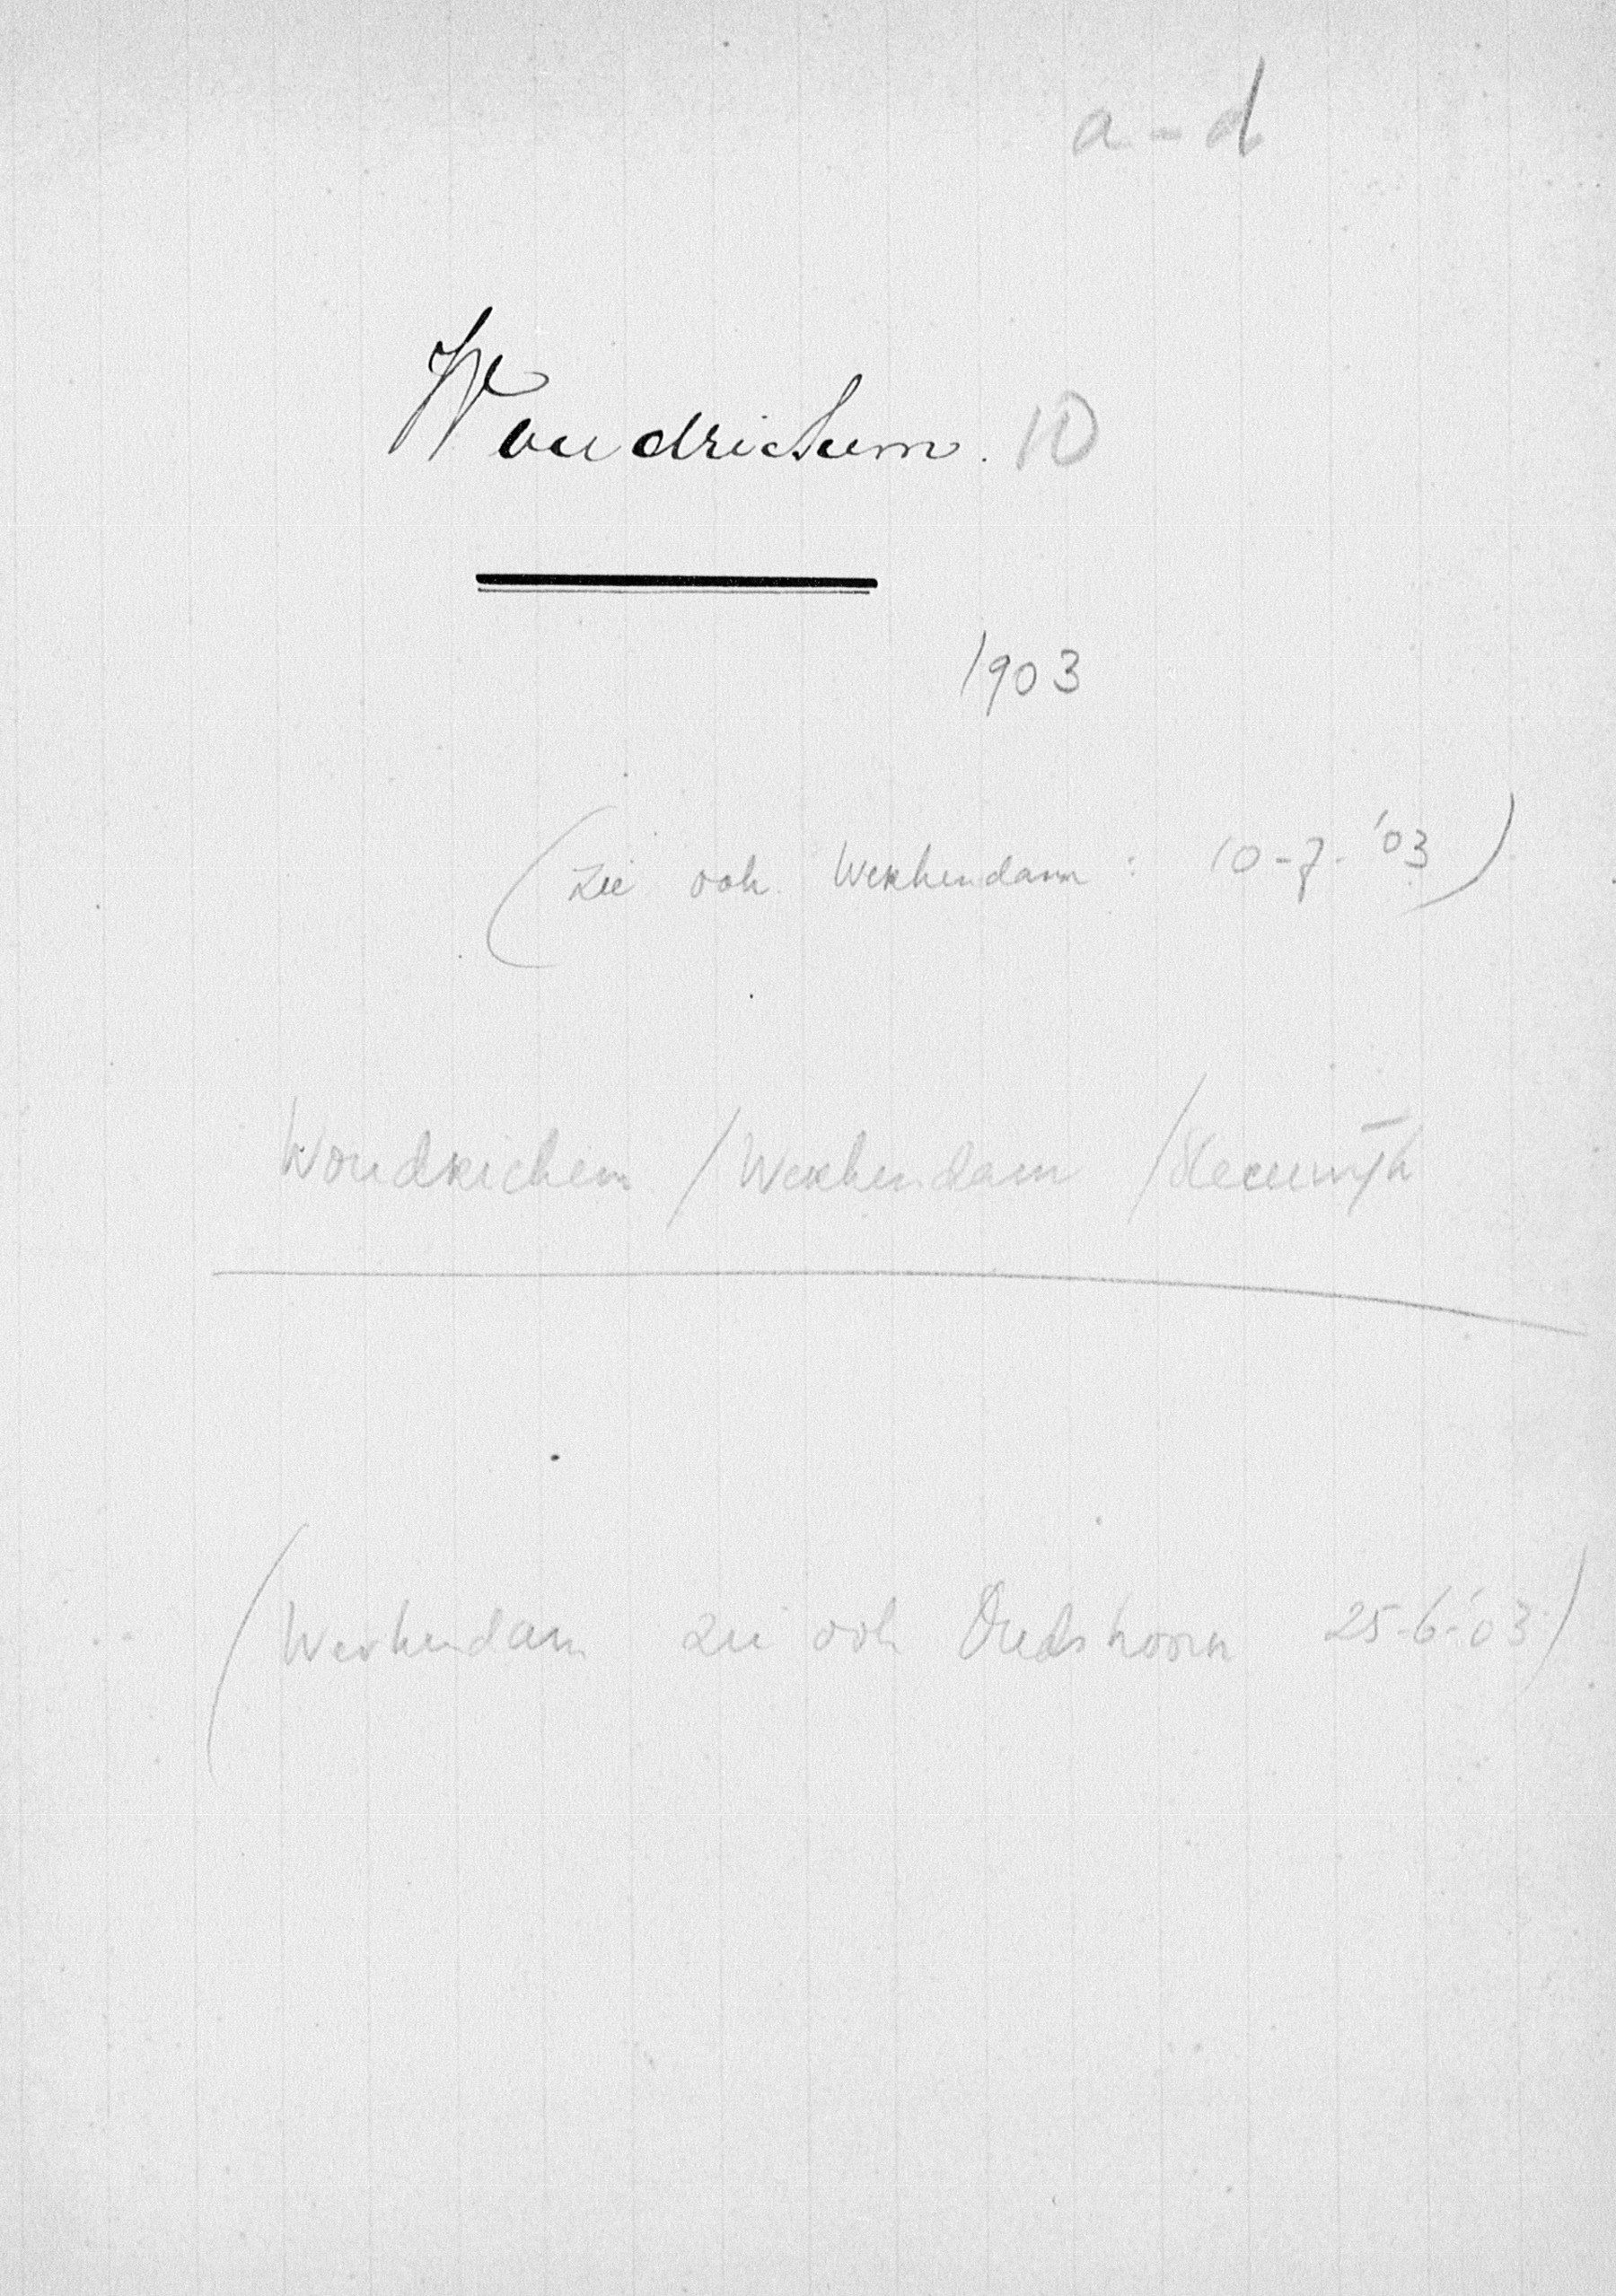 a - d
Woudrichem. 10
1903
(zie ook Werkendam : 10-7-'03)
Woudrichem / Werkendam / Sleeuwijk
(Werkendam zie ook Oudshoorn 25-6-'03)